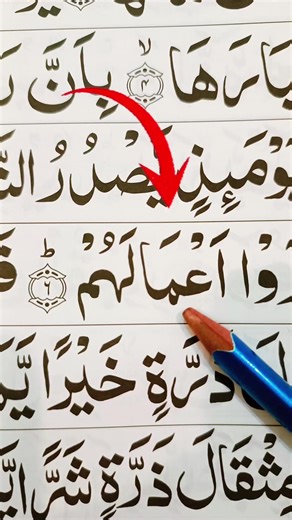 بَارَهَا ۙ﴿۴﴾ بِاَنَّ
وْمَىِٕذٍ يَّصْدُرُ النَّ
رَوْا اَعْمَالَهُمْ ؕ﴿۶﴾ فَ
لَ ذَرَّةٍ خَيْرًا يَّ
مِثْقَالَ ذَرَّةٍ شَرًّا يَّ